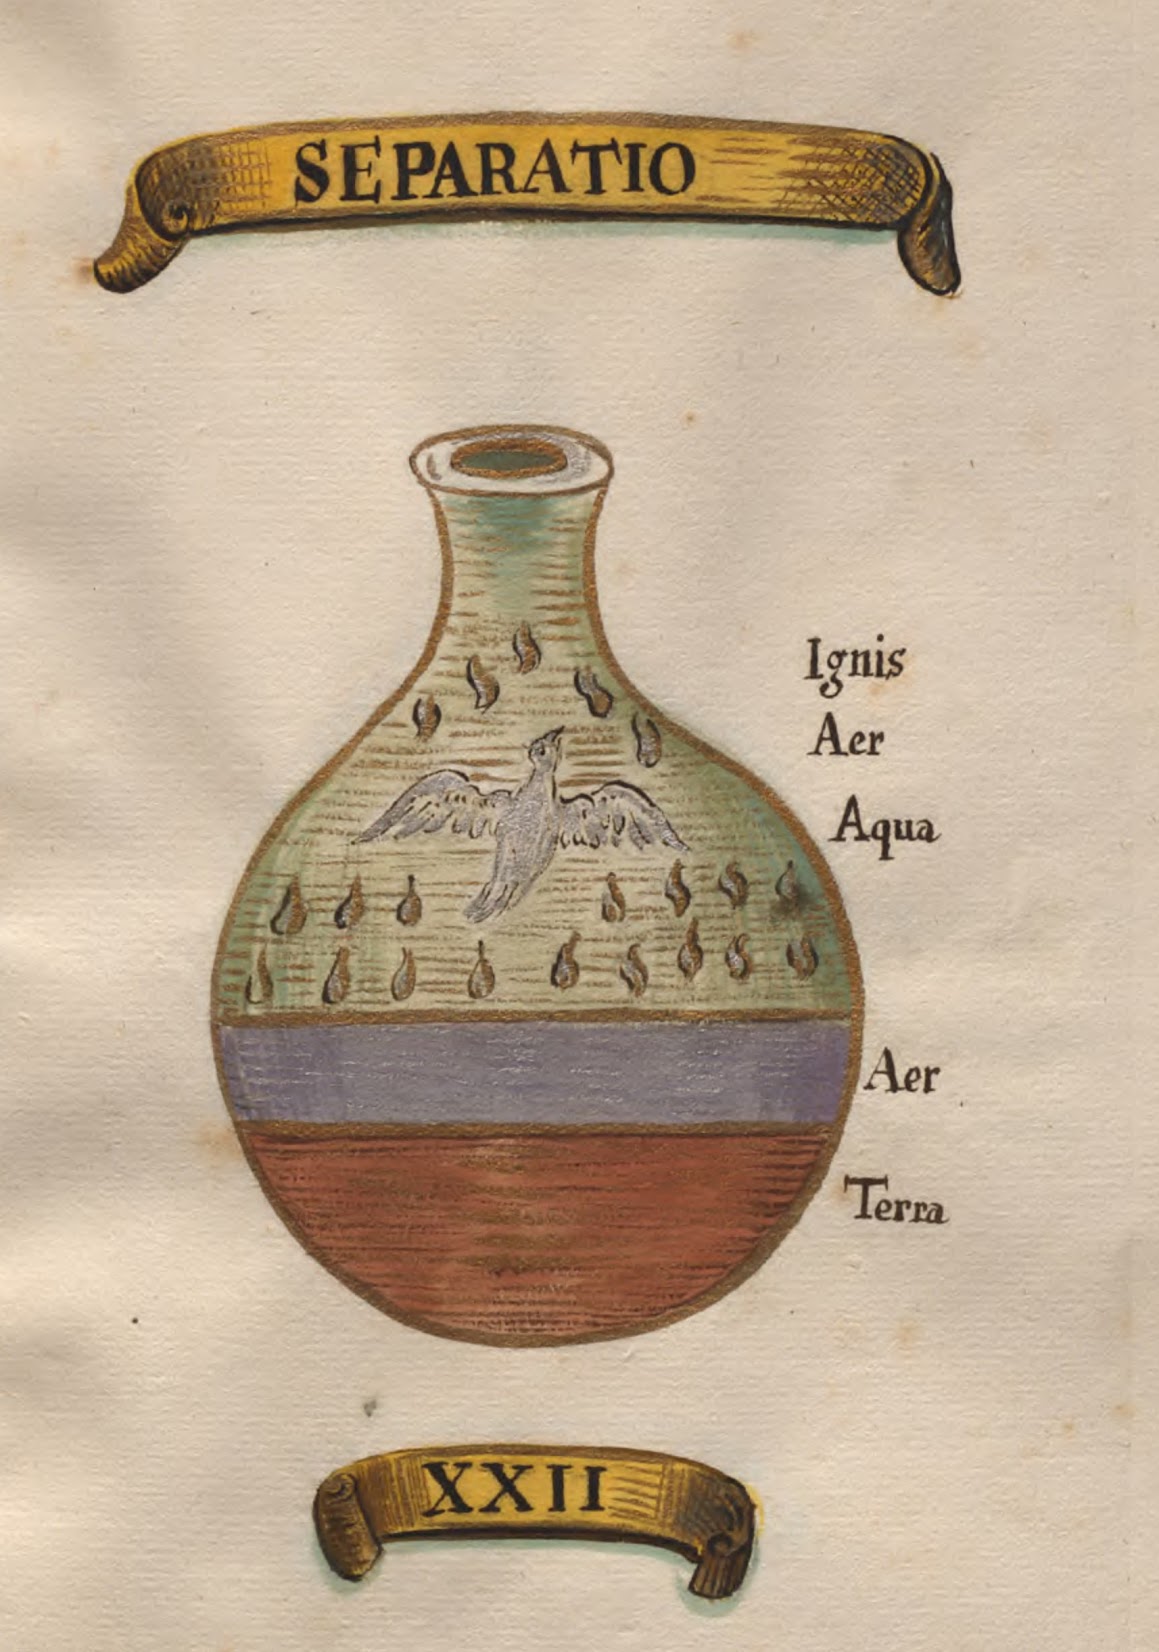 SEPARATIO
Ignis
Aer
Aqua
Aer
Terra
XXII